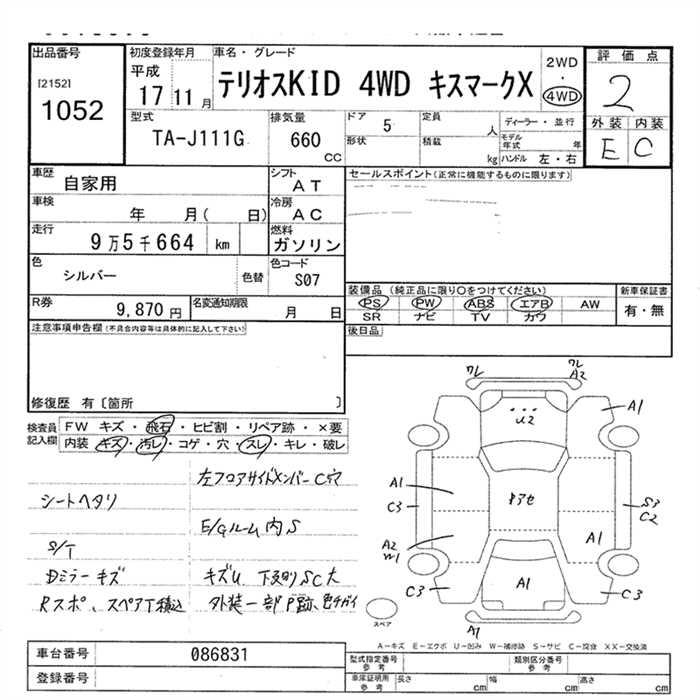 出品番号
[2152]
1052
初度登録年月
平成
17 11 月
車名・グレード
テリオスKID 4WD キスマークX
2WD
・
4WD
評価点
2
外装 内装
E C
型式
TA-J111G
排気量
660
CC
ドア 5
形状
定員 人
積載 kg
ディーラー・並行
モデル年式 年
ハンドル 左・右
車歴
自家用
シフト
AT
車検
年 月( 日)
冷房
AC
走行
9万5千664 km
燃料
ガソリン
色
シルバー
色替
色コード
S07
R券
9,870 円
名変通知期限
月 日
セールスポイント(正常に機能するものに限ります)
装備品 (純正品に限り○をつけてください)
PS PW ABS エアB AW
SR ナビ TV カワ
新車保証書
有・無
後日品
注意事項申告欄(不具合内容等は具体的に記入して下さい)
修復歴 有〔箇所 〕
検査員記入欄
FW キズ・飛石・ヒビ割・リペア跡・×要
内装 キズ・汚レ・コゲ・穴・スレ・キレ・破レ
左フロアサイドメンバーC穴
シートヘタリ
E/Gルーム内S
S/T
Dミラーキズ
キズU 下廻りSC大
Rスポ、スペアT積込
外装一部P跡、色チガイ
ワレ
ワレ
A2
A1
U2
A1
C3
ドアセ
S3
C2
A2
W1
A1
C3
A1
C3
A1
スペア
A-キズ E-エクボ U-凹み W-補修跡 S-サビ C-腐食 XX-交換済
車台番号
086831
登録番号
型式指定番号
参考
類別区分番号
参考
車庫証明用
参考
長さ cm
幅 cm
高さ cm